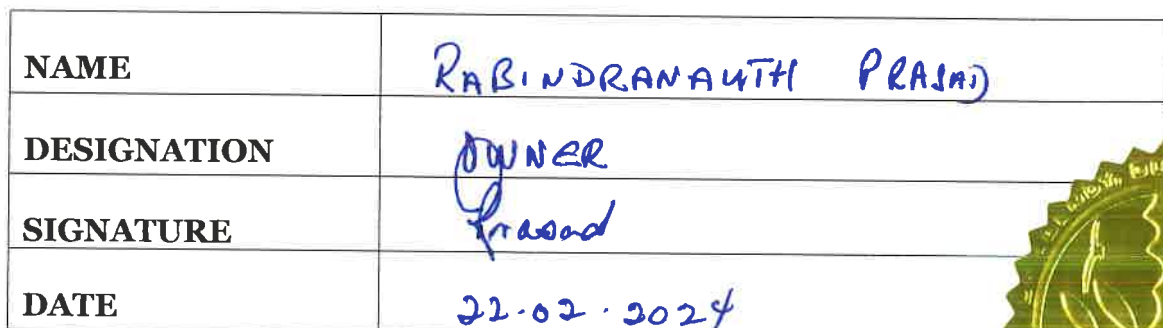 NAME RABINDRANAUTH PRASAD
DESIGNATION OWNER
SIGNATURE Prasad
DATE 22.02.2024